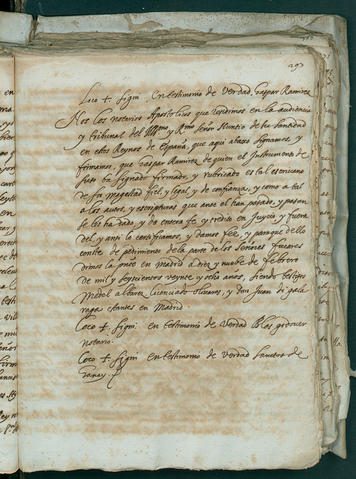 293
Loco + signi. En testimonio de Verdad, Gaspar Ramirez
Nos los notarios Apostolicos que residimos en la audiencia
y tribunal del Illmo y Rmo señor Nuntio de su Santidad
en estos Reynos de España, que aqui abaxo signamos y
firmamos, que Gaspar Ramirez de quien el Instrumento de
suso ba signado firmado, y rubricado es tal escrivano
de su magestad fiel, y legal, y de confiança, y como a tal
a los autos, y escripturas que ante el han pasado, y pasan
se les ha dado, y da entera fe, y credito en Juycio, y fuera
del, y ansi lo certificamos, y damos fee, y para que dello
conste de pedimiento de la parte de los señores
dimos la presente en madrid a diez y nuebe de febrero
de mil y seyscientos veynte y ocho años, siendo testigos
Manol albarez licenciado Olivares, y don Juan
estantes en Madrid
Loco + signi. en testimonio de Verdad Blas
notario.
Loco + signi en testimonio de Verdad de